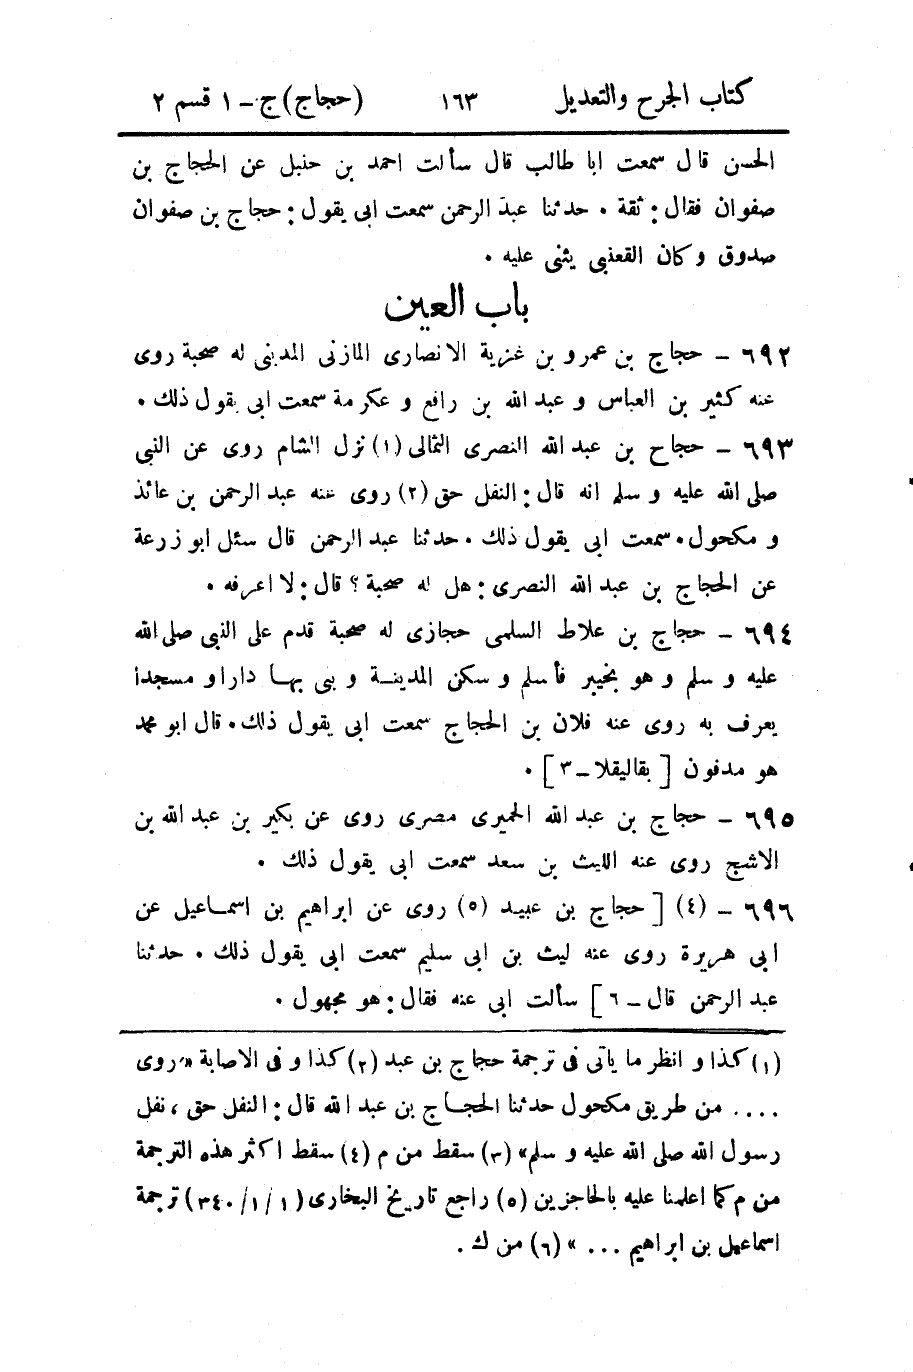 كتاب الجرح والتعديل ١٦٣ (حجاج) ج – ١ قسم ٢
الحسن قال سمعت ابا طالب قال سألت احمد بن حنبل عن الحجاج بن
صفوان فقال : ثقة . حدثنا عبد الرحمن سمعت ابى يقول : حجاج بن صفوان
صدوق وكان القعنبى يثنى عليه .
باب العين
٦٩٢ – حجاج بن عمرو بن غزية الانصارى المازنى المدينى له صحبة روى
عنه كثير بن العباس وعبد الله بن رافع وعكرمة سمعت ابى يقول ذلك .
٦٩٣ – حجاج بن عبد الله النصرى الثمالى (١) نزل الشام روى عن النبى
صلى الله عليه وسلم انه قال : النفل حق (٢) روى عنه عبد الرحمن بن عائذ
ومكحول . سمعت ابى يقول ذلك . حدثنا عبد الرحمن قال سئل ابو زرعة
عن الحجاج بن عبد الله النصرى : هل له صحبة ؟ قال : لا اعرفه .
٦٩٤ – حجاج بن علاط السلمى حجازى له صحبة قدم على النبى صلى الله
عليه وسلم وهو بخيبر فأسلم وسكن المدينة وبنى بها دارا ومسجدا
يعرف به روى عنه فلان بن الحجاج سمعت ابى يقول ذلك . قال ابو محمد
هو مدفون [ بقاليقلا – ٣ ] .
٦٩٥ – حجاج بن عبد الله الحميرى مصرى روى عن بكير بن عبد الله بن
الاشج روى عنه الليث بن سعد سمعت ابى يقول ذلك .
٦٩٦ – (٤) [ حجاج بن عبيد (٥) روى عن ابراهيم بن اسماعيل عن
ابى هريرة روى عنه ليث بن ابى سليم سمعت ابى يقول ذلك . حدثنا
عبد الرحمن قال – ٦ ] سألت ابى عنه فقال : هو مجهول .
(١) كذا وانظر ما يأتى فى ترجمة حجاج بن عبد (٢) كذا وفى الاصابة «روى
.... من طريق مكحول حدثنا الحجاج بن عبد الله قال : النفل حق ، نفل
رسول الله صلى الله عليه وسلم» (٣) سقط من م (٤) سقط اكثر هذه الترجمة
من م كما اعلمنا عليه بالحاجزين (٥) راجع تاريخ البخارى (١/١/٣٤٠) ترجمة
اسماعيل بن ابراهيم ... » (٦) من ك .